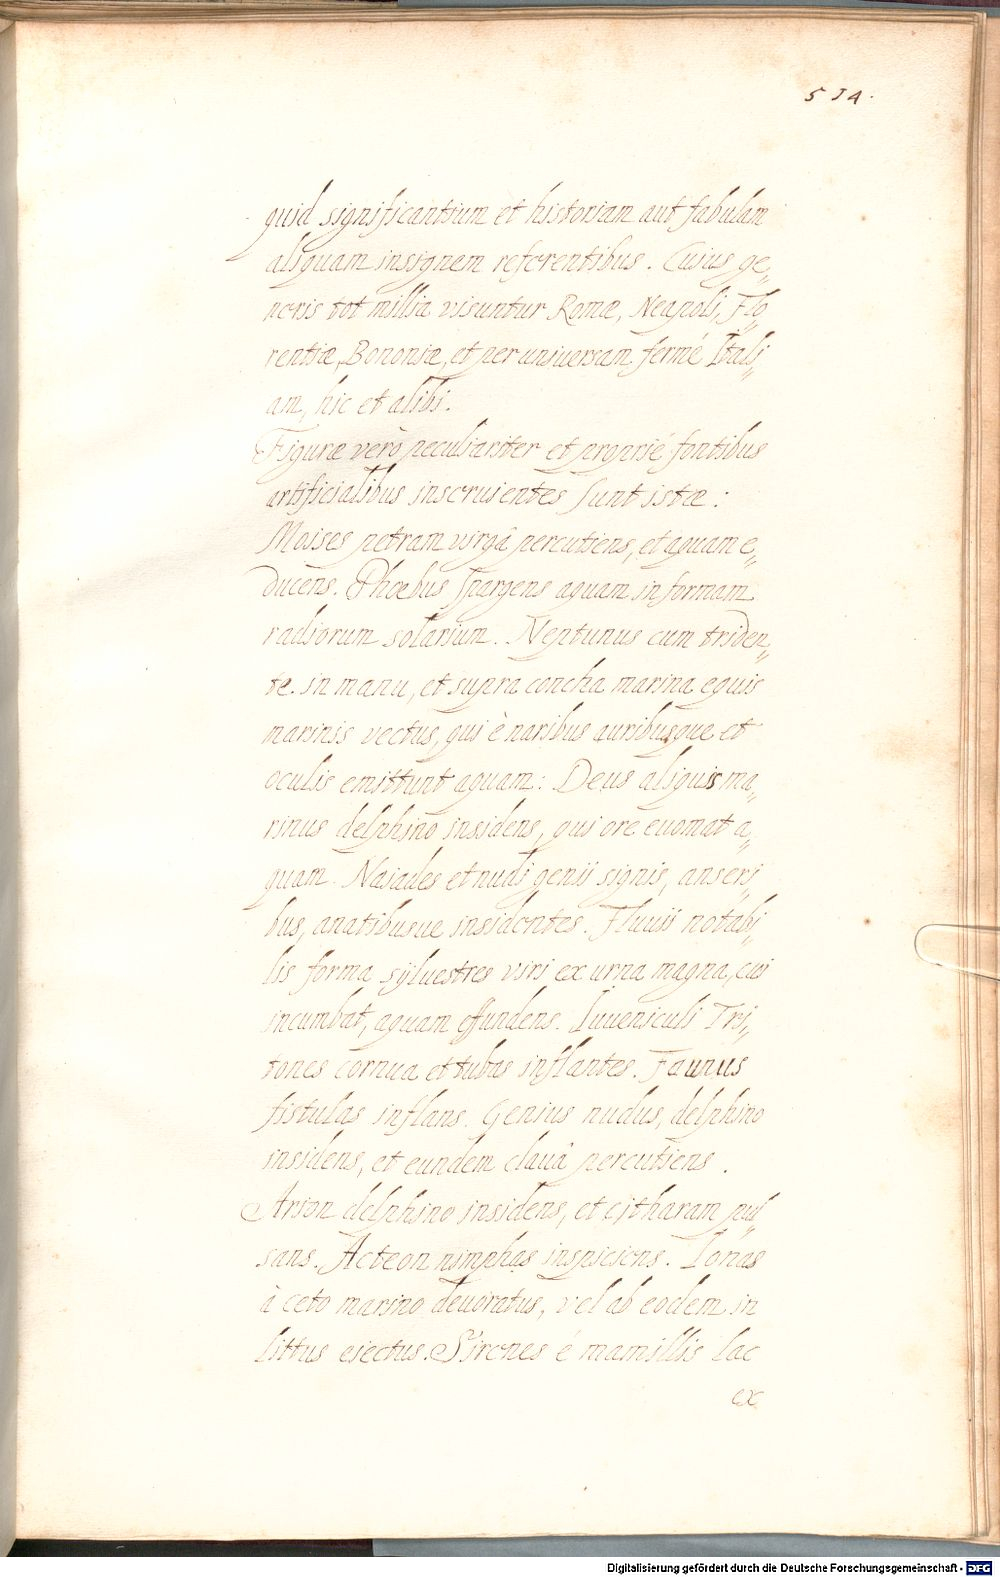 534.
quid significantium et historiam aut fabulam
aliquam insignem referentibus. Cuius ge„
neris tot millia visuntur Romæ, Neapoli, Flo„
rentiæ, Bononiæ, et per universam fermé Itali„
am, hic et alibi.
Figuræ verò peculiariter et proprié fontibus
artificialibus inseruientes sunt istæ:
Moises petram virgâ percutiens, et aquam e„
ducens. Phœbus spargens aquam in formam
radiorum solarium. Neptunus cum triden„
te. in manu, et supra concha marina equis
marinis vectus, qui è naribus auribusque et
oculis emittunt aquam: Deus aliquis ma„
rinus delphino insidens, qui ore euomat a„
quam. Naiades et nudi genii signis, anseri„
bus, anatibusue insidentes. Fluuii notabi„
lis forma sÿluestres viri ex urna magna, cui
incumbat, aquam effundens. Iuueniculi Tri„
tones cornua et tubas inflantes. Faunus
fistulas inflans. Genius nudus, delphino
insidens, et eundem clauâ percutiens.
Arion delphino insidens, et citharam pul„
sans. Acteon nimphas inspiciens. Ionas
à ceto marino deuoratus, vel ab eodem in
littus eiectus. Sirenes é mamillis lac
ex
Digitalisierung gefördert durch die Deutsche Forschungsgemeinschaft - DFG